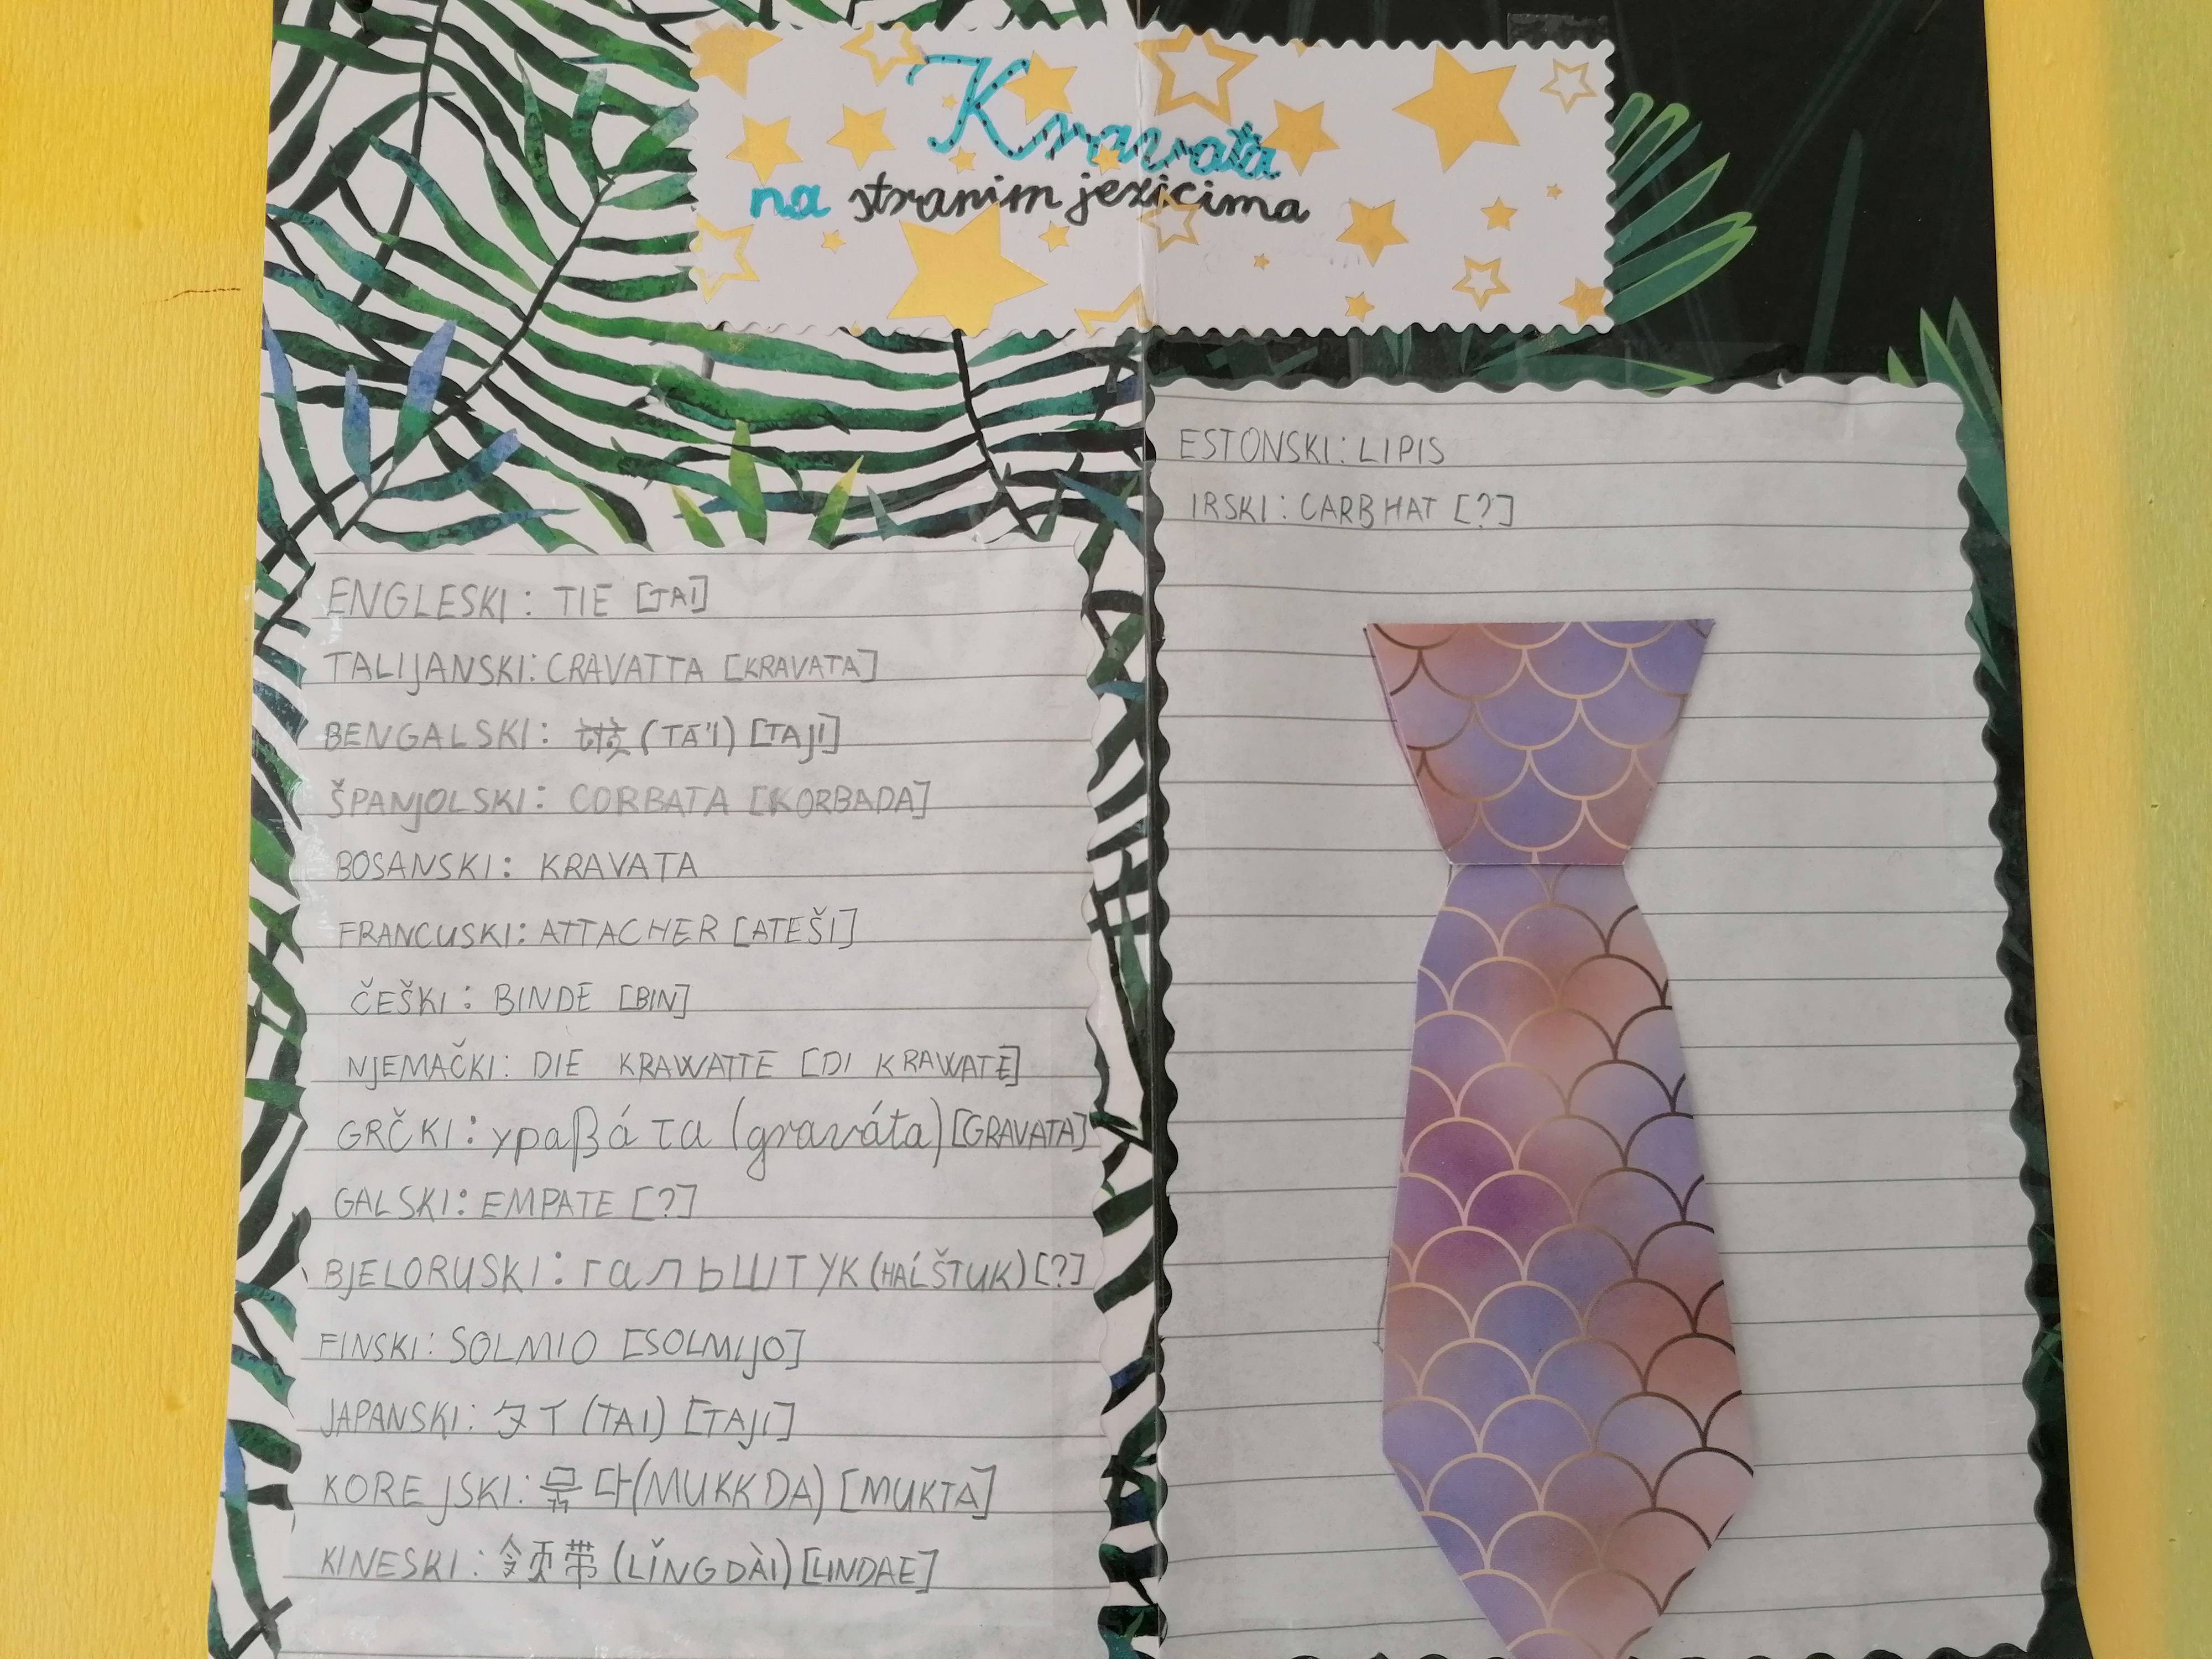 Kravata
na stranim jezicima
ENGLESKI: TIE [TAI]
TALIJANSKI: CRAVATTA [KRAVATA]
BENGALSKI: (TĀ'I) [TAJI]
ŠPANJOLSKI: CORBATA [KORBADA]
BOSANSKI: KRAVATA
FRANCUSKI: ATTACHER [ATEŠI]
ČEŠKI: BINDE [BIN]
NJEMAČKI: DIE KRAWATTE [DI KRAWATE]
GRČKI: γραβάτα (graváta) [GRAVATA]
GALSKI: EMPATE [?]
BJELORUSKI: гальштук (HAĹŠTUK) [?]
FINSKI: SOLMIO [SOLMIJO]
JAPANSKI: タイ (TAI) [TAJI]
KOREJSKI: 묶다 (MUKKDA) [MUKTA]
KINESKI: 领带 (LǏNGDÀI) [LINDAE]
ESTONSKI: LIPIS
IRSKI: CARBHAT [?]